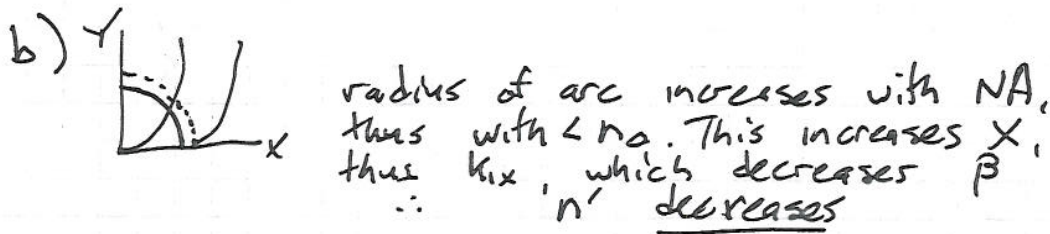 b) Y
X
radius of arc increases with NA,
thus with < n₀. This increases X,
thus k₁ₓ, which decreases β
∴ 'n' decreases